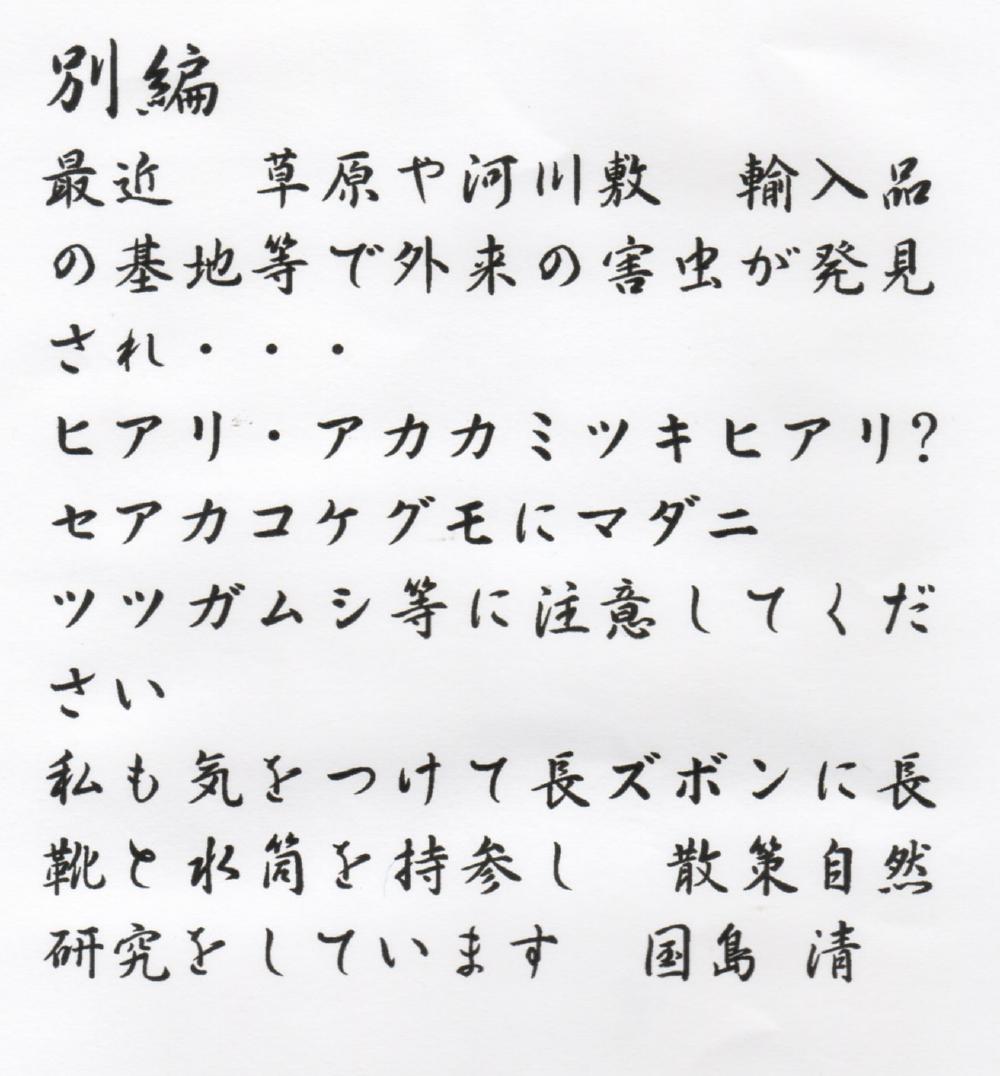 別編
最近　草原や河川敷　輸入品
の基地等で外来の害虫が発見
され・・・
ヒアリ・アカカミツキヒアリ?
セアカコケグモにマダニ
ツツガムシ等に注意してくだ
さい
私も気をつけて長ズボンに長
靴と水筒を持参し　散策自然
研究をしています　国島 清